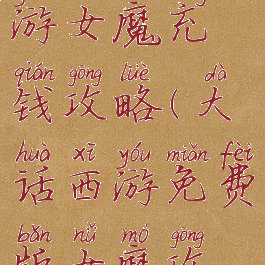 游女魔充
qián gōng lüè dà
钱攻略(大
huà xī yóu miǎn fèi
话西游免费
bǎn nǚ mó gōng
版女魔攻